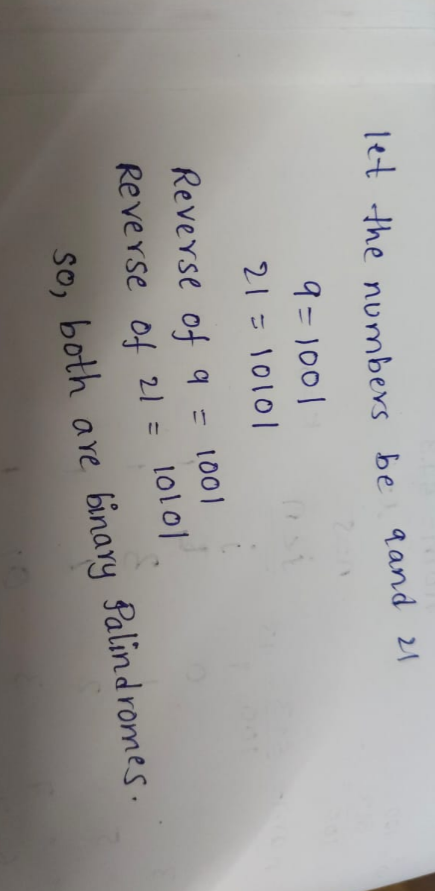 let the numbers be 9 and 21
9 = 1001
21 = 10101
Reverse of 9 = 1001
Reverse of 21 = 10101
so, both are binary Palindromes.